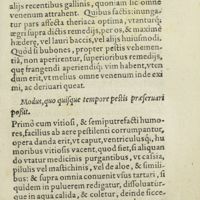 alijs recentibus gallinis, quoniam sic omne
venenum attrahent. Quibus factis inunga-
tur pars affecta theriaca optima, vtanturq́;
ægri supra dictis remedijs, per os, & maximè
hæderę, vel lauri baccis, vel alijs huiusmodi.
Quod si bubones, propter pestis vehemen-
tiã, non aperirentur, superioribus remedijs,
quę frangendi aperiendiq́; vim habent, vten
dum erit, vt melius omne venenum inde exi
mi, ac deriuari queat.
Modus, quo quisque tempore pestis præseruari
possit.
Primò cum vitiosi, & semiputrefacti humo-
res, facilius ab aere pestilenti corrumpantur,
opera danda erit, vt caput, ventriculusq́;, hu
moribus vitiosis vacent, quod fiet, si aliquan
do vtatur medicinis purgantibus, vt cassia,
pilulis vel masticinis, vel de aloe, & simili-
bus: & supra omnia conuenit vsus tartari, si
quidem in puluerem redigatur, dissoluatur-
que in aqua calida, & coletur, deinde ite-